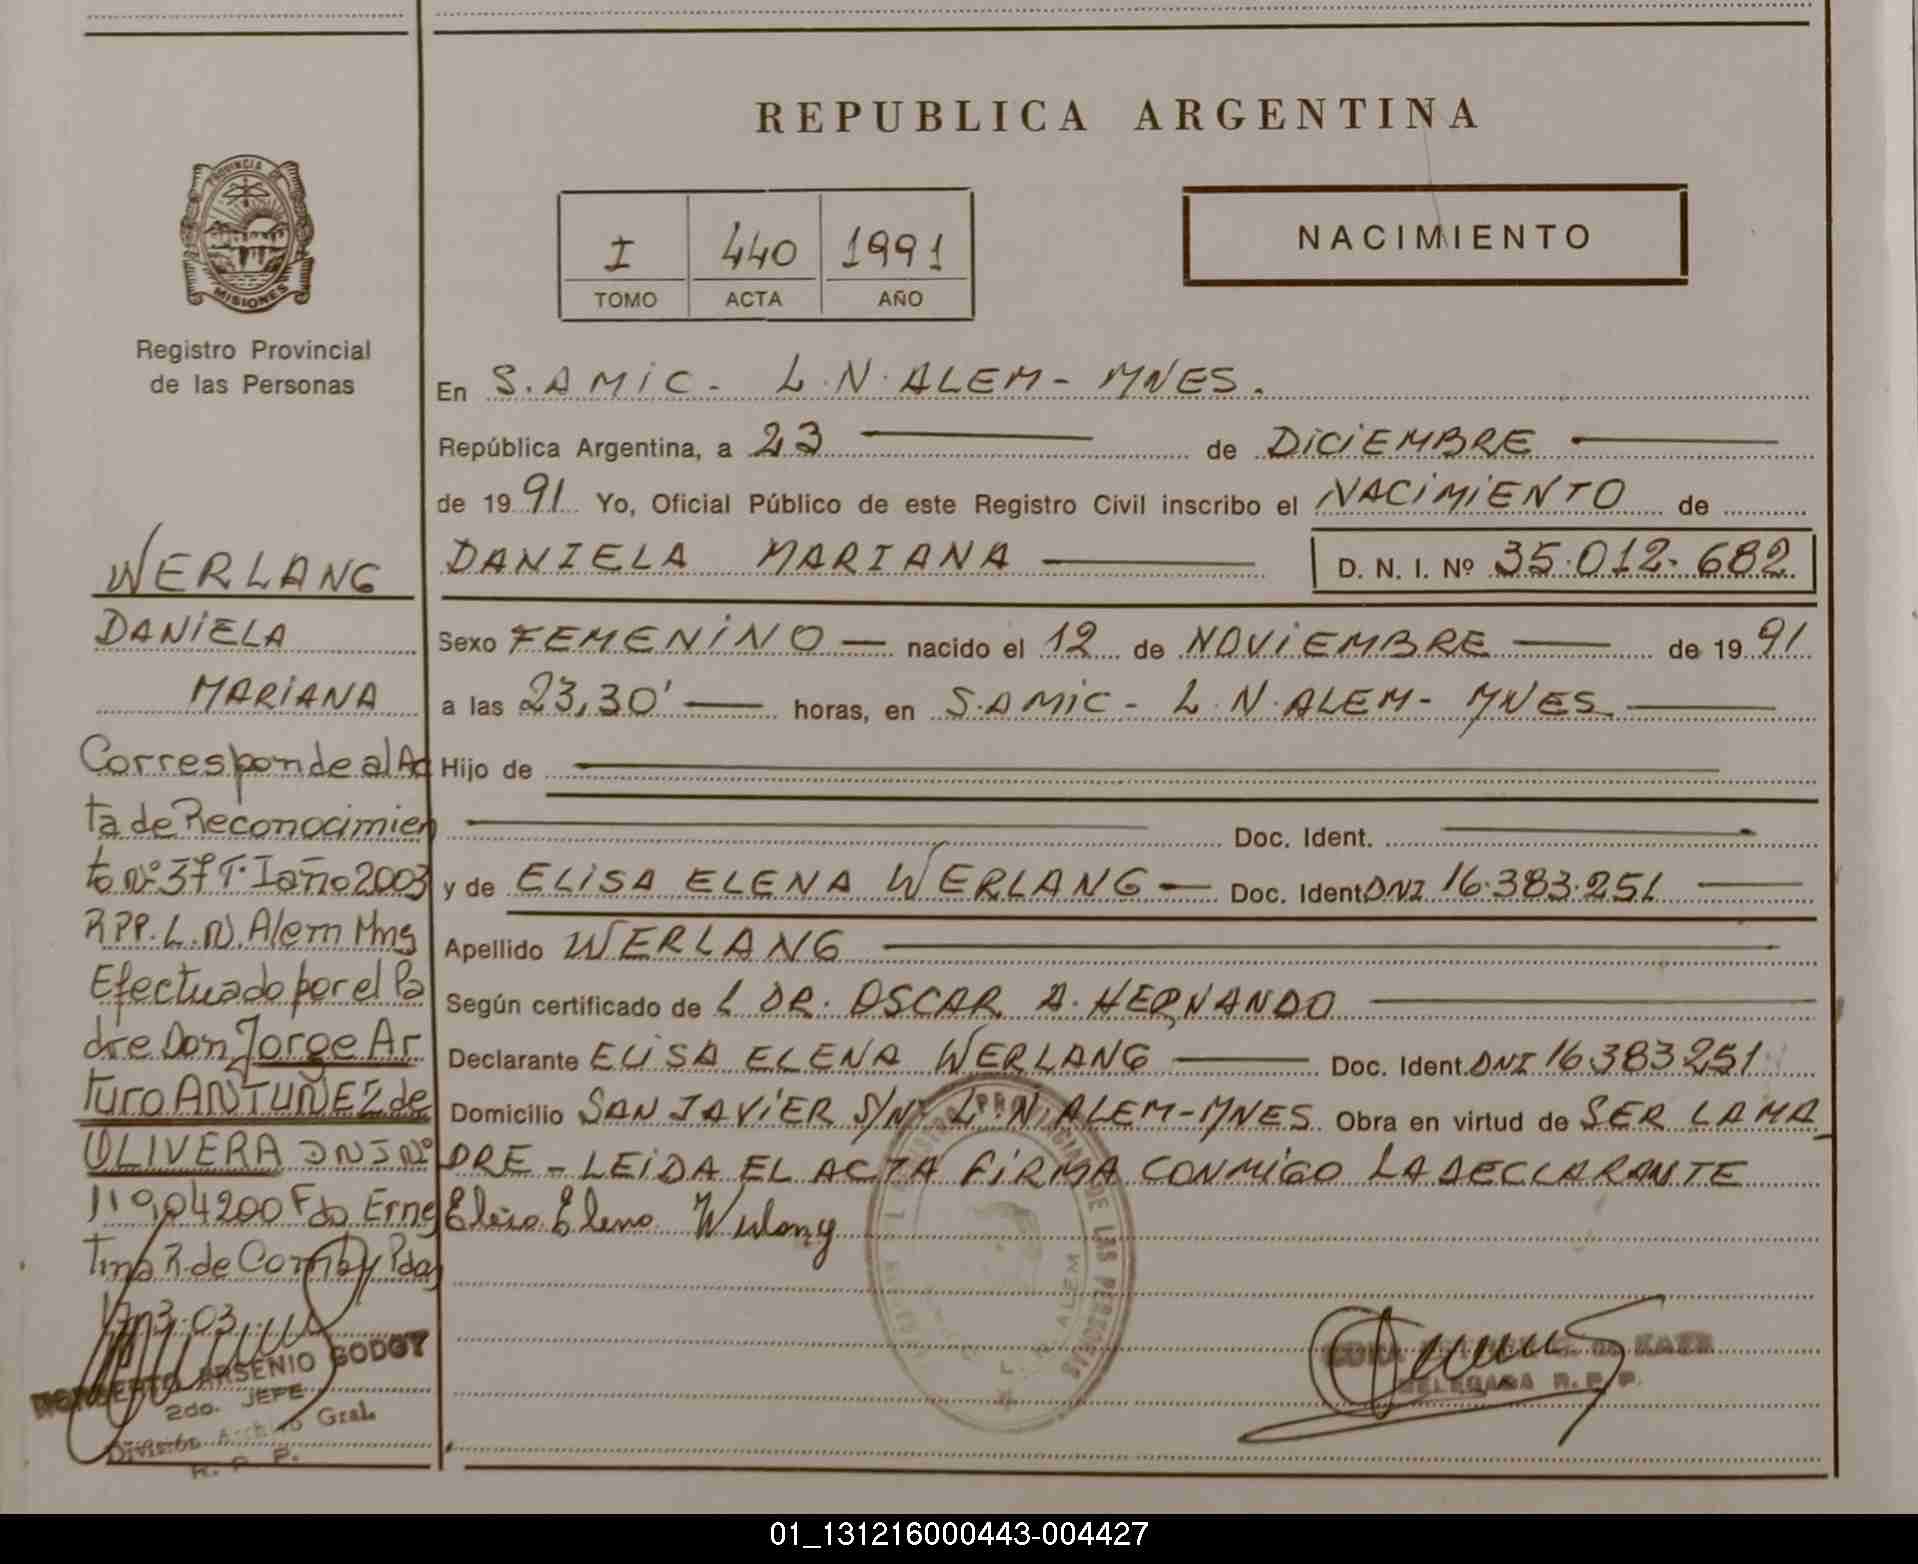 REPUBLICA ARGENTINA
PROVINCIA DE
MISIONES
Registro Provincial
de las Personas
I 440 1991
TOMO ACTA AÑO
NACIMIENTO
En S. AMIC - L.N. ALEM - MNES.
República Argentina, a 23 de DICIEMBRE
de 1991 Yo, Oficial Público de este Registro Civil inscribo el NACIMIENTO de
DANIELA MARIANA D. N. I. Nº 35.012.682
Sexo FEMENINO nacido el 12 de NOVIEMBRE de 1991
a las 23,30' horas, en S. AMIC - L.N. ALEM - MNES
Hijo de
Doc. Ident.
y de ELISA ELENA WERLANG Doc. Ident. DNI 16.383.251
Apellido WERLANG
Según certificado de L DR. OSCAR A. HERNANDO
Declarante ELISA ELENA WERLANG Doc. Ident. DNI 16383251
Domicilio SAN JAVIER S/Nº L.N ALEM-MNES Obra en virtud de SER LA MA
DRE - LEIDA EL ACTA FIRMA CONMIGO LA DECLARANTE
Elisa Elena Werlang
DELEGADA R. P. P.
WERLANG
DANIELA
MARIANA
Corresponde al Ac
ta de Reconocimien
to Nº 37 T. I año 2003
RPP. L.N. Alem Mns
Efectuado por el Pa
dre Don Jorge Ar
turo ANTUNEZ de
OLIVERA DNI Nº
Fdo Erne
tina R. de
NORBERTO ARSENIO GODOY
2do. JEFE
División Archivo Gral.
R. P. P.
L. N. ALEM
01_131216000443-004427